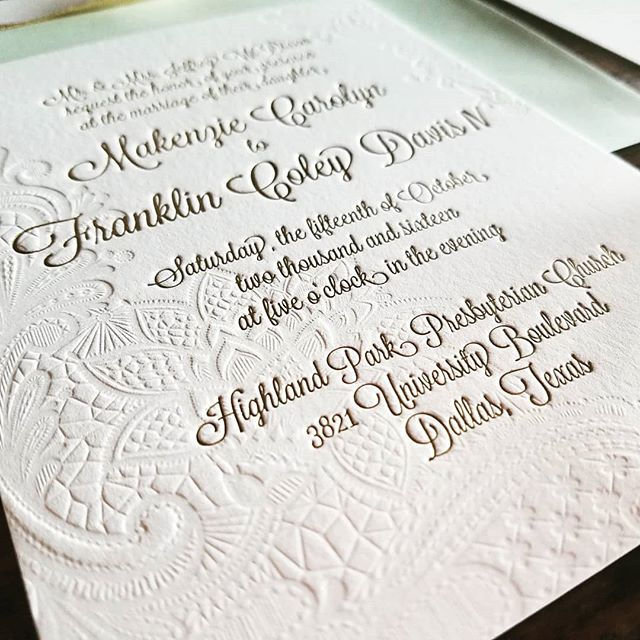 Mr. & Mrs.
request the honor of your presence
at the marriage of their daughter
Makenzie Carolyn
to
Franklin Coley Davis IV
Saturday, the fifteenth of October,
two thousand and sixteen
at five o'clock in the evening
Highland Park Presbyterian Church
3821 University Boulevard
Dallas, Texas